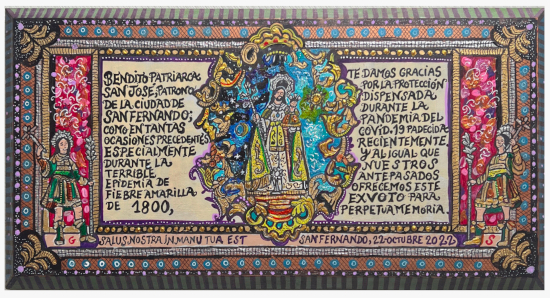 BENDITO PATRIARCA
SAN JOSE, PATRONO
DE LA CIUDAD DE
SAN FERNANDO;
COMO EN TANTAS
OCASIONES PRECEDENTES
ESPECIALMENTE
DURANTE LA
TERRIBLE
EPIDEMIA DE
FIEBRE AMARILLA
DE 1800,
TE DAMOS GRACIAS
POR LA PROTECCIÓN
DISPENSADA
DURANTE LA
PANDEMIA DEL
COVID.19 PADECIDA
RECIENTEMENTE,
Y AL IGUAL QUE
NUESTROS
ANTEPASADOS
OFRECEMOS ESTE
EXVOTO PARA
PERPETUA MEMORIA.
G SALUS.NOSTRA.IN.MANU TUA EST SAN FERNANDO, 22-OCTUBRE 2022 S